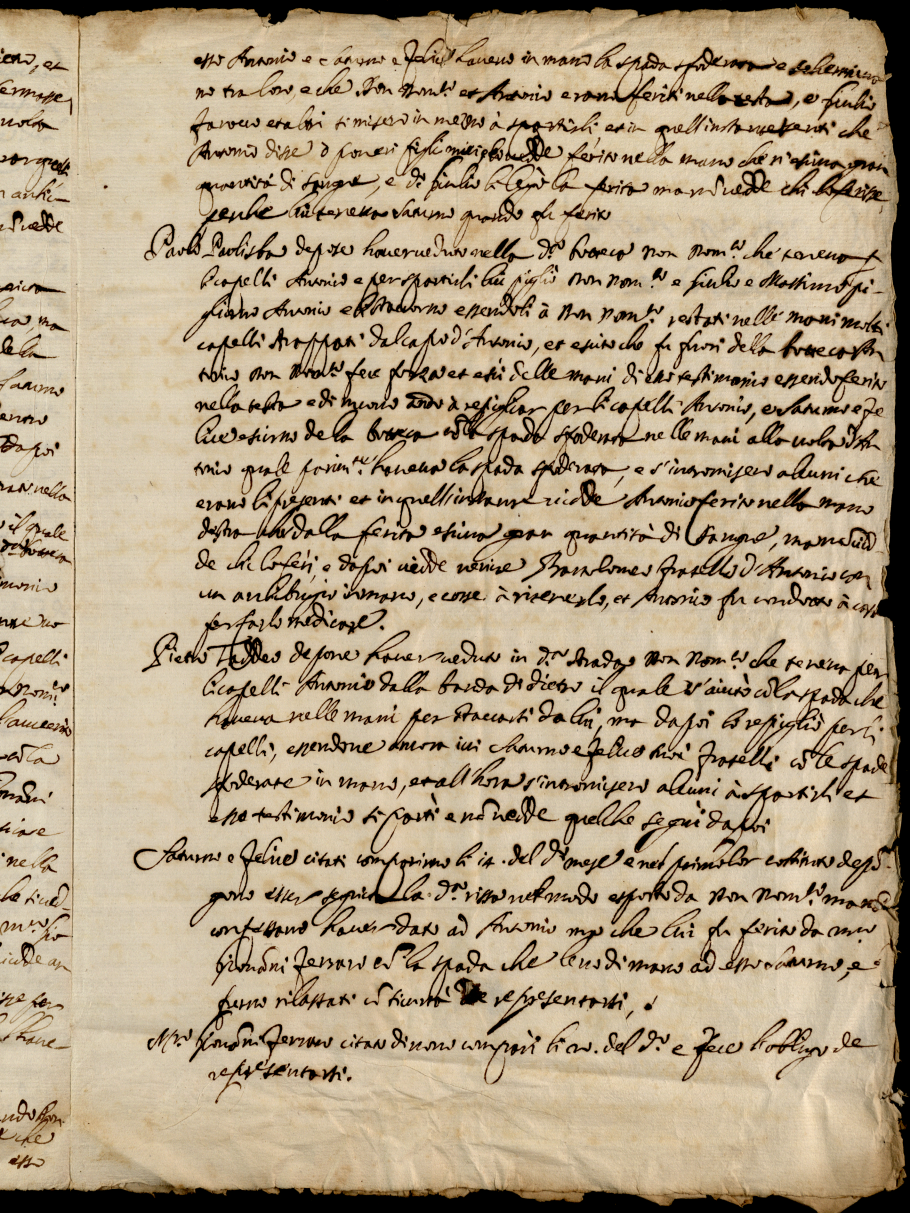 esso Antonio e Saturno e Felice havevo in mano la spada sfoderata e schermivano
no tra loro, e che Non Nom.to et Antonio erano feriti nella testa, e Giulio
Ferraro et altri si misero in mezzo à spartirli et in quell'instante sentì che
Antonio disse ò poveri figli miei, vedde ferito nella mano che n'esciva gran
quantità di sangue, e d.o Giulio li legò la ferita ma nõ vedde chi lo ferisse,
perche lui teneva Saturno quando fu ferito
Paolo Paolista depose haver veduto nella d.a botteca Non Nom.to che teneva p
li capelli Antonio e per spartirli lui pigliò Non Nom.to e Giulio e Massimo pi-
gliorno Antonio e lo staccorno essendoli à Non Nom.to restati nelle mani molti
capelli strappati dal capo d'Antonio, et escito che fu fuori della botteca An
tonio Non Nom.to fece forza et escì delle mani di esso testimonio essendo ferito
nella testa e di nuovo andò à repigliar per li capelli Antonio, e Saturno e Fe
lice escirno de la botteca cõ la spada sfoderata nelle mani alla volta d'An
tonio quale parim.te haveva la spada sfoderata, e s'intromisero alcuni che
erano li presenti et in quell'instante vidde Antonio ferito nella mano
destra che dalla ferita esciva gran quantità di sangue, ma nõ vid
de chi lo ferì, e dapoi vidde venire Bartolomeo fratello d'Antonio con
un archibugio in mano, e corse à ritenerlo, et Antonio fu condotto à casa
per farlo medicare.
Pietro Taddeo depone haver veduto in d.a strada Non Nom.to che teneva per
li capelli Antonio dalla banda di dietro il quale s'aiutò cõ la spada che
haveva nelle mani per staccarsi da lui, ma dapoi lo repigliò per li
capelli, essendone ancora ivi Saturno e Felice suoi fratelli cõ le spade
sfoderate in mano, et all'hora s'intromisero alcuni à spartirli et
esso testimonio si partì e nõ vedde quel che seguì dapoi
Saturno e Felice citati comparirno li del d.o mese e nel primo lor costituto depõ-
gono esser seguita la d.a rissa nel modo esposto da Non Nom.to ma nõ
confessano haver dato ad Antonio ma che lui fu ferito da m.ro
Giovãni Ferraro cõ la spada che levò di mano ad esso Saturno, e
furno rilassati cõ sicurtà de representarsi,
M.ro Giovãni Ferraro citato di novo comparì li del d.o e fece l'obbligo de
representarsi.